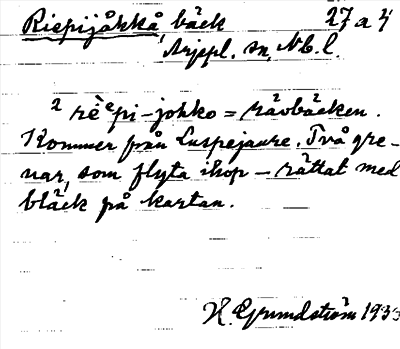 Riepijåkkå, bäck 27 a 4
Arjepl. sn, Nb. l.
2 rèepi-johko = rävbäcken.
Kommer från Luspejaure. Två gre-
nar, som flyta ihop – rättat med
bläck på kartan.
H. Grundström 1933